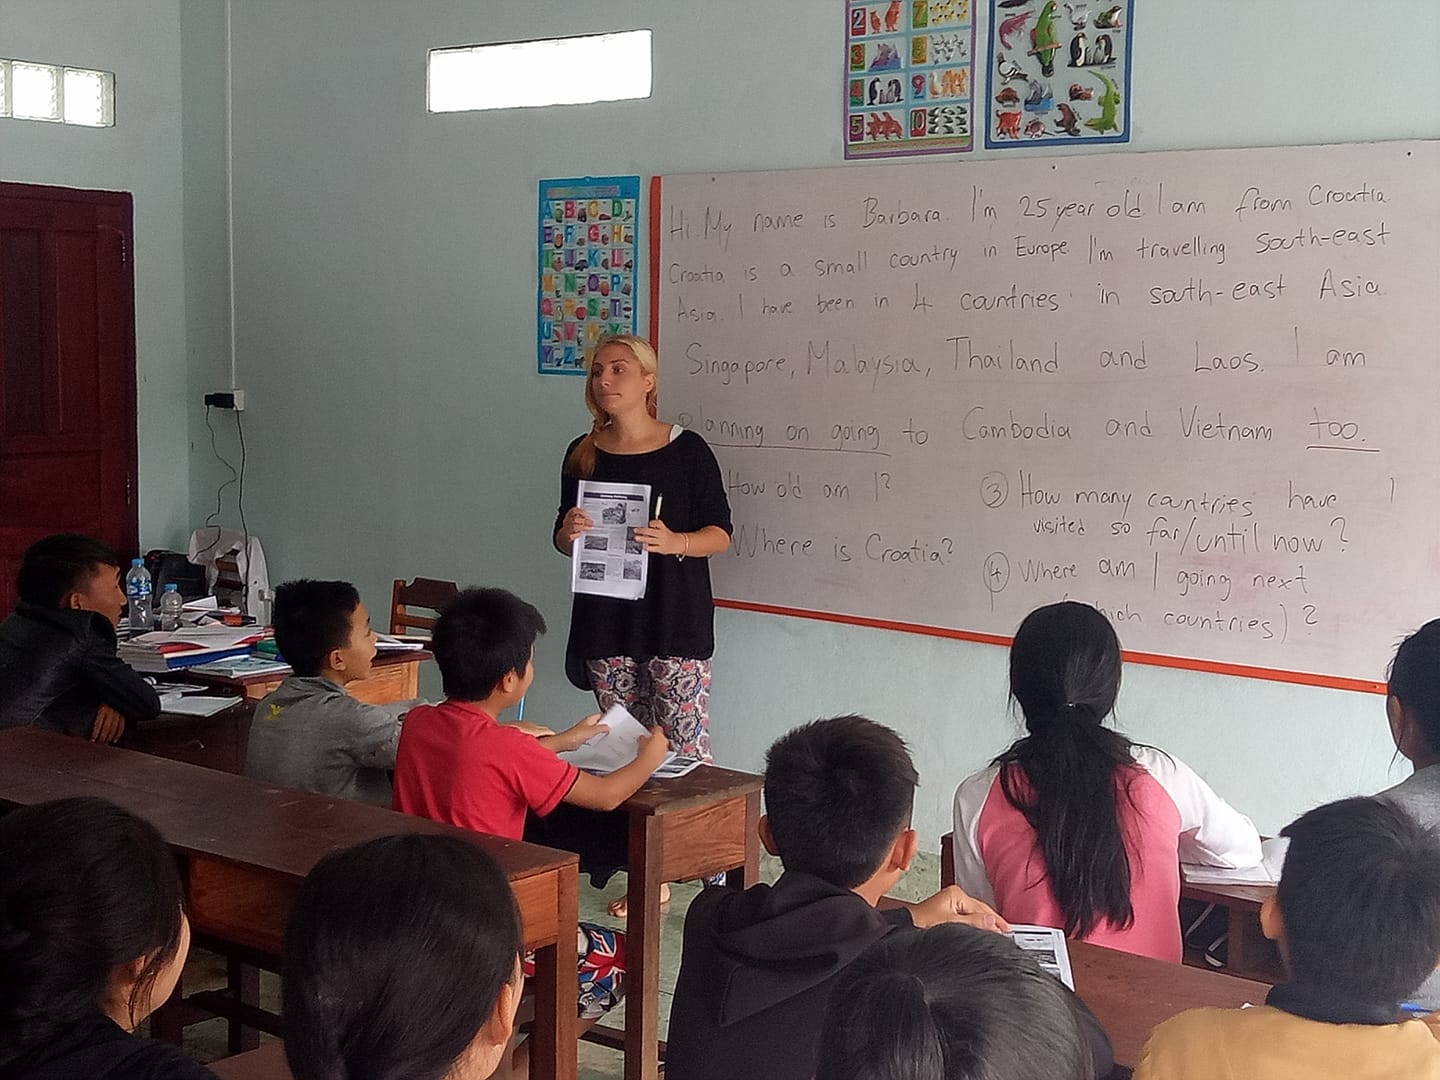 Hi. My name is Barbara. I'm 25 year old I am from Croatia.
Croatia is a small country in Europe. I'm travelling south-east
Asia. I have been in 4 countries in south-east Asia.
Singapore, Malaysia, Thailand and Laos. I am
planning on going to Cambodia and Vietnam too.
How old am I?
Where is Croatia?
③ How many countries have I
visited so far/until now?
④ Where am I going next
(which countries)?
2 7
3 8
4 9
5 10
A B C D
E F G H
I J K L
M N O P
Q R S T
U V W X
Y Z